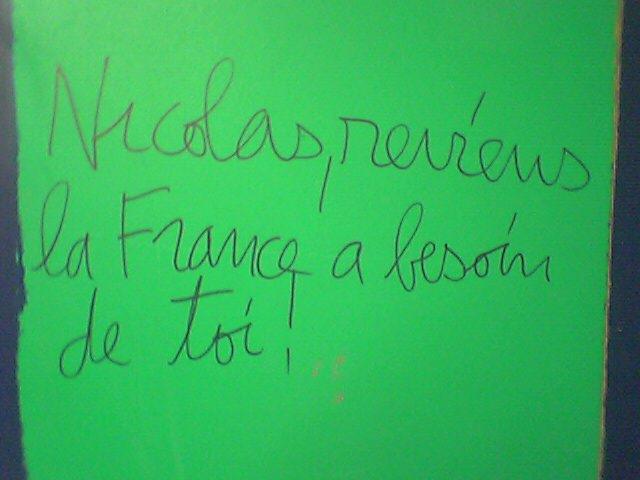 Nicolas, reviens
la France a besoin
de toi !